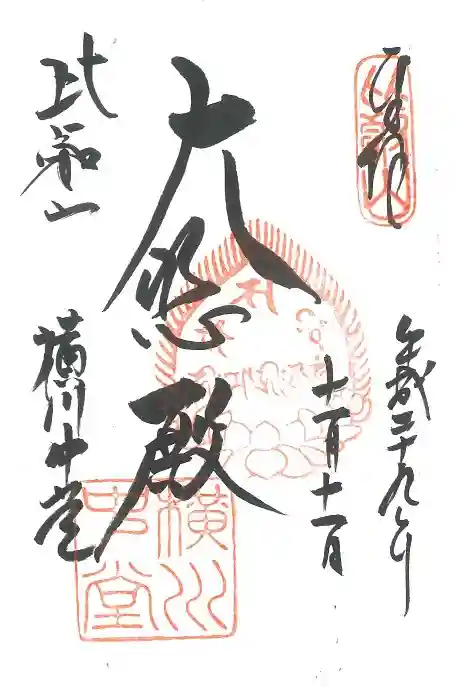 奉拝
平成二十九年
十一月十一日
大悲殿
比叡山
横川中堂
横川
中堂